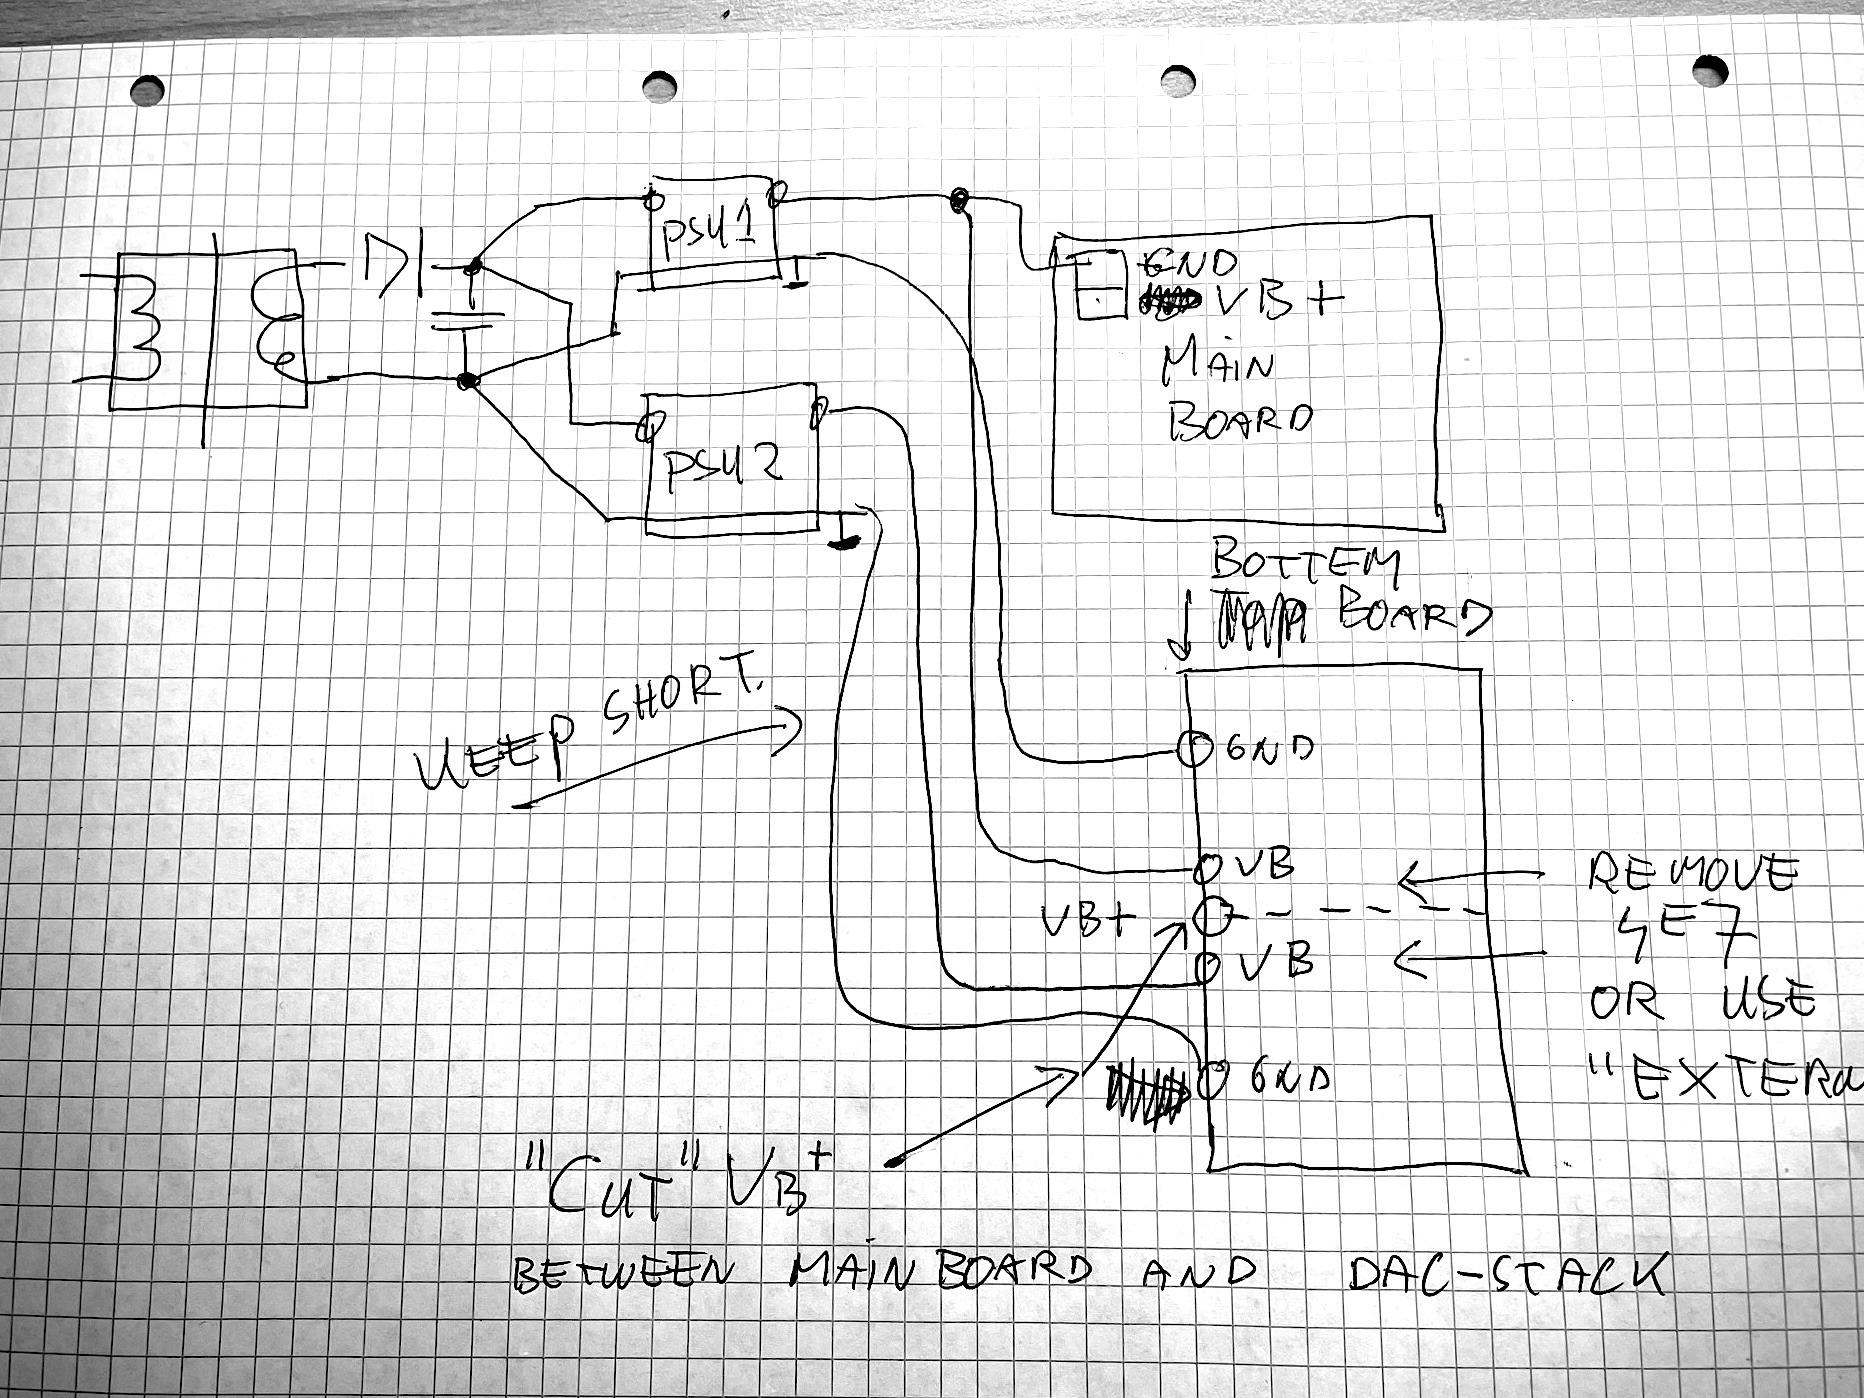 PSU1
GND
VB+
MAIN
BOARD
PSU2
BOTTEM
BOARD
KEEP SHORT.
GND
VB
VB+
VB
GND
REMOVE
OR USE
"EXTERN
"CUT" VB+
BETWEEN MAIN BOARD AND DAC-STACK